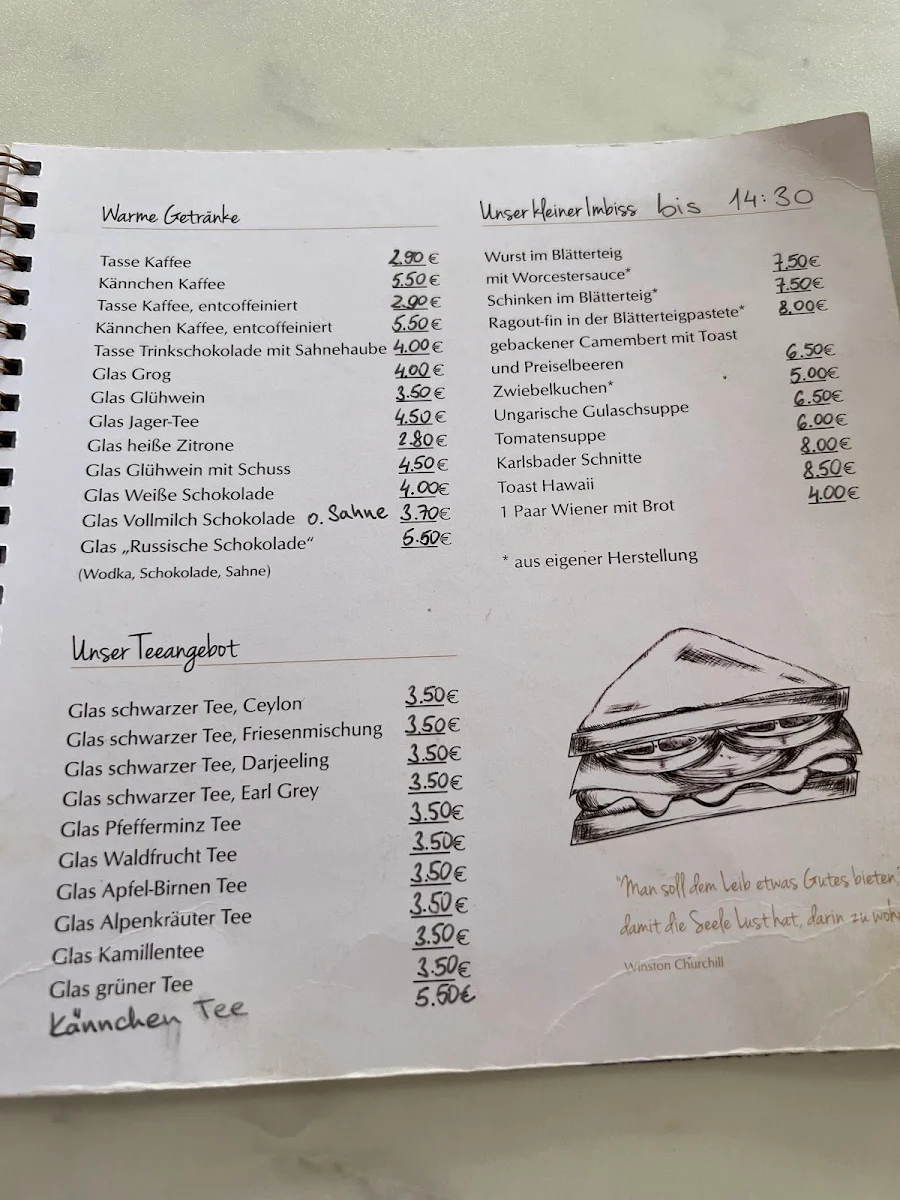 Warme Getränke
Tasse Kaffee 2.90 €
Kännchen Kaffee 5.50 €
Tasse Kaffee, entcoffeiniert 2.90 €
Kännchen Kaffee, entcoffeiniert 5.50 €
Tasse Trinkschokolade mit Sahnehaube 4.00 €
Glas Grog 4.00 €
Glas Glühwein 3.50 €
Glas Jager-Tee 4.50 €
Glas heiße Zitrone 2.80 €
Glas Glühwein mit Schuss 4.50 €
Glas Weiße Schokolade 4.00€
Glas Vollmilch Schokolade o. Sahne 3.70€
Glas „Russische Schokolade“ 5.50€
(Wodka, Schokolade, Sahne)
Unser Teeangebot
Glas schwarzer Tee, Ceylon 3.50€
Glas schwarzer Tee, Friesenmischung 3.50€
Glas schwarzer Tee, Darjeeling 3.50€
Glas schwarzer Tee, Earl Grey 3.50€
Glas Pfefferminz Tee 3.50€
Glas Waldfrucht Tee 3.50€
Glas Apfel-Birnen Tee 3.50€
Glas Alpenkräuter Tee 3.50€
Glas Kamillentee 3.50€
Glas grüner Tee 3.50€
Kännchen Tee 5.50€
Unser kleiner Imbiss bis 14:30
Wurst im Blätterteig
mit Worcestersauce* 7.50€
Schinken im Blätterteig* 7.50€
Ragout-fin in der Blätterteigpastete* 8.00€
gebackener Camembert mit Toast
und Preiselbeeren 6.50€
Zwiebelkuchen* 5.00€
Ungarische Gulaschsuppe 6.50€
Tomatensuppe 6.00€
Karlsbader Schnitte 8.00€
Toast Hawaii 8.50€
1 Paar Wiener mit Brot 4.00€
* aus eigener Herstellung
"Man soll dem Leib etwas Gutes bieten,
damit die Seele Lust hat, darin zu
Winston Churchill